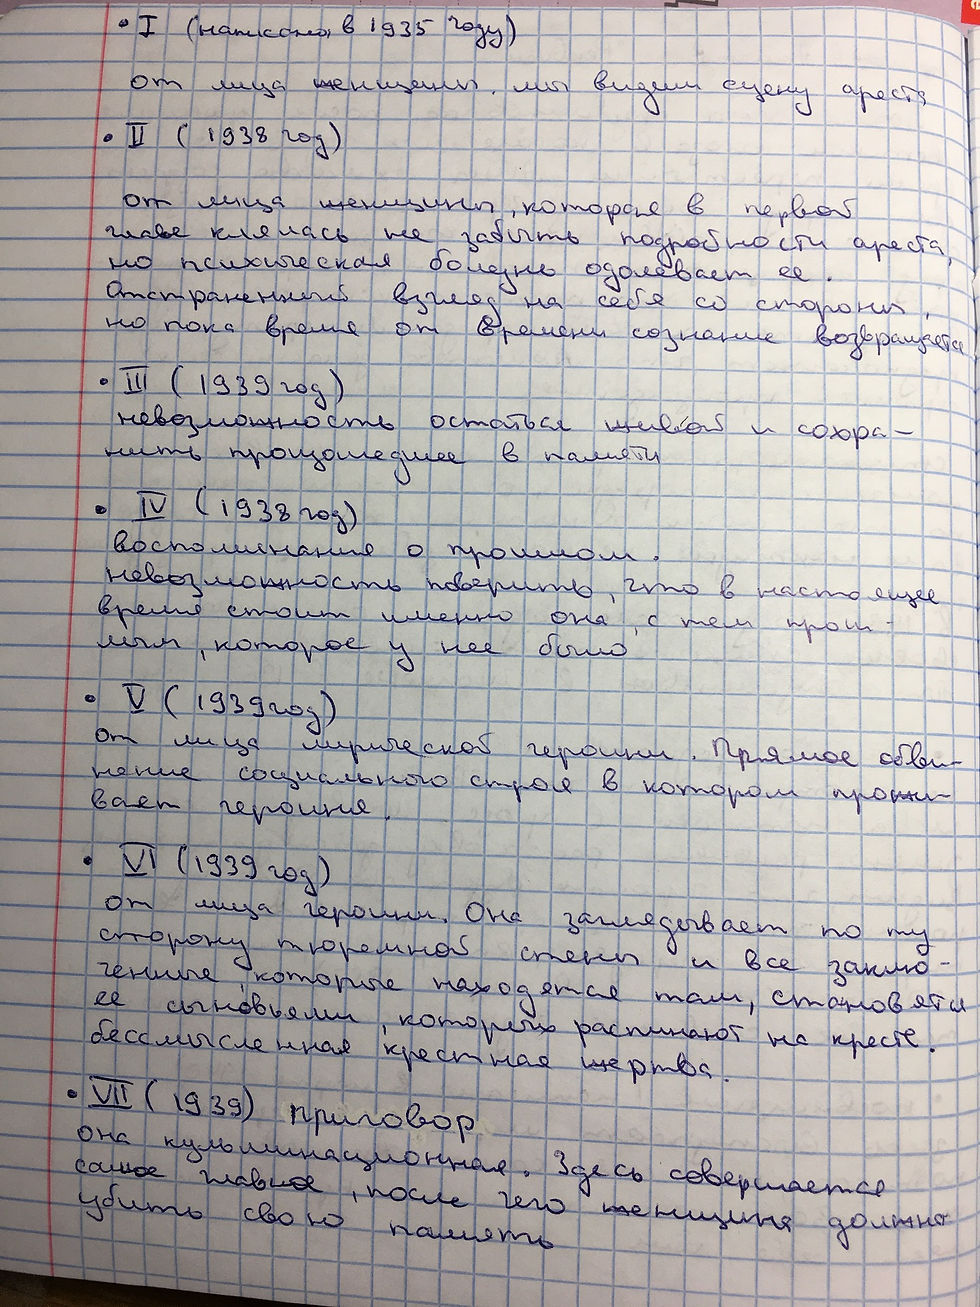 • I (написана в 1935 году)
от лица женщины. мы видим сцену ареста
• II ( 1938 год)
от лица женщины, которая в первой
главе клялась не забыть подробности ареста,
но психическая болезнь одолевает ее.
Отстраненный взгляд на себя со стороны,
но пока время от времени сознание возвращается
• III ( 1939 год)
невозможность остаться живой и сохра-
нить произошедшее в памяти
• IV (1938 год)
воспоминания о прошлом.
невозможность поверить, что в настоящее
время стоит именно она, с тем прош-
лым, которое у нее было
• V ( 1939 год)
от лица лирической героини. Прямое обви-
нение социального строя в котором прожи-
вает героиня.
• VI (1939 год)
от лица героини. Она заглядывает по ту
сторону тюремной стены и все заклю-
ченные, которые находятся там, становятся
ее сыновьями, которых распинают на кресте.
бессмысленная крестная жертва.
• VII ( 1939) приговор
она кульминационная. Здесь совершается
самое главное, после чего женщина должна
убить свою память